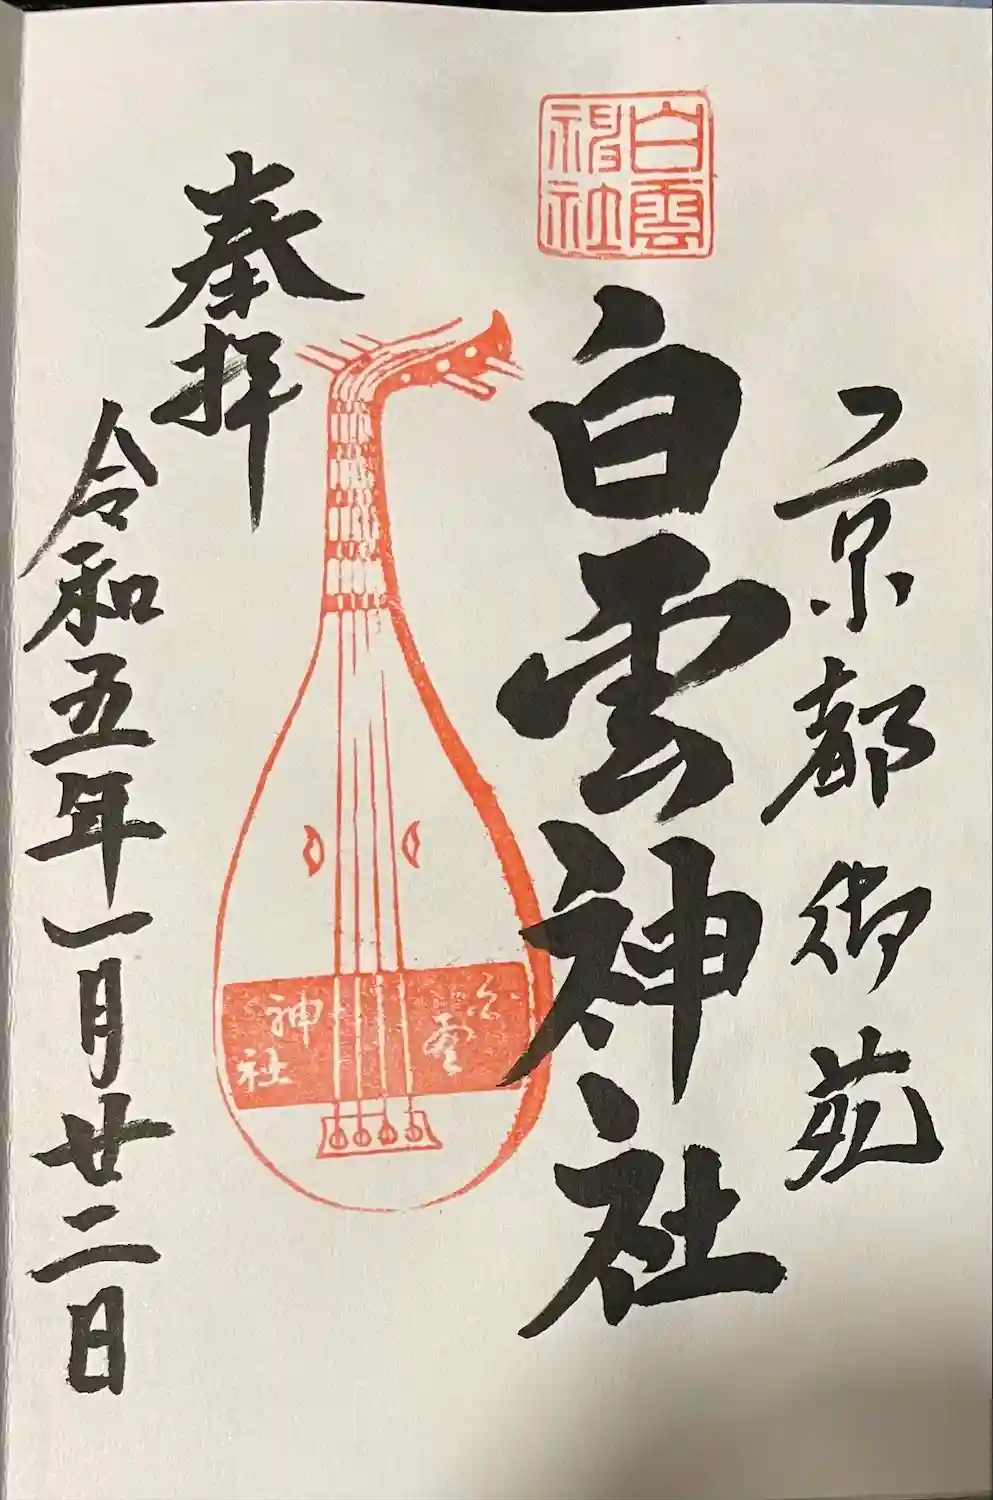 京都御苑
白雲
神社
白雲神社
白雲
神社
奉拝
令和五年一月廿二日